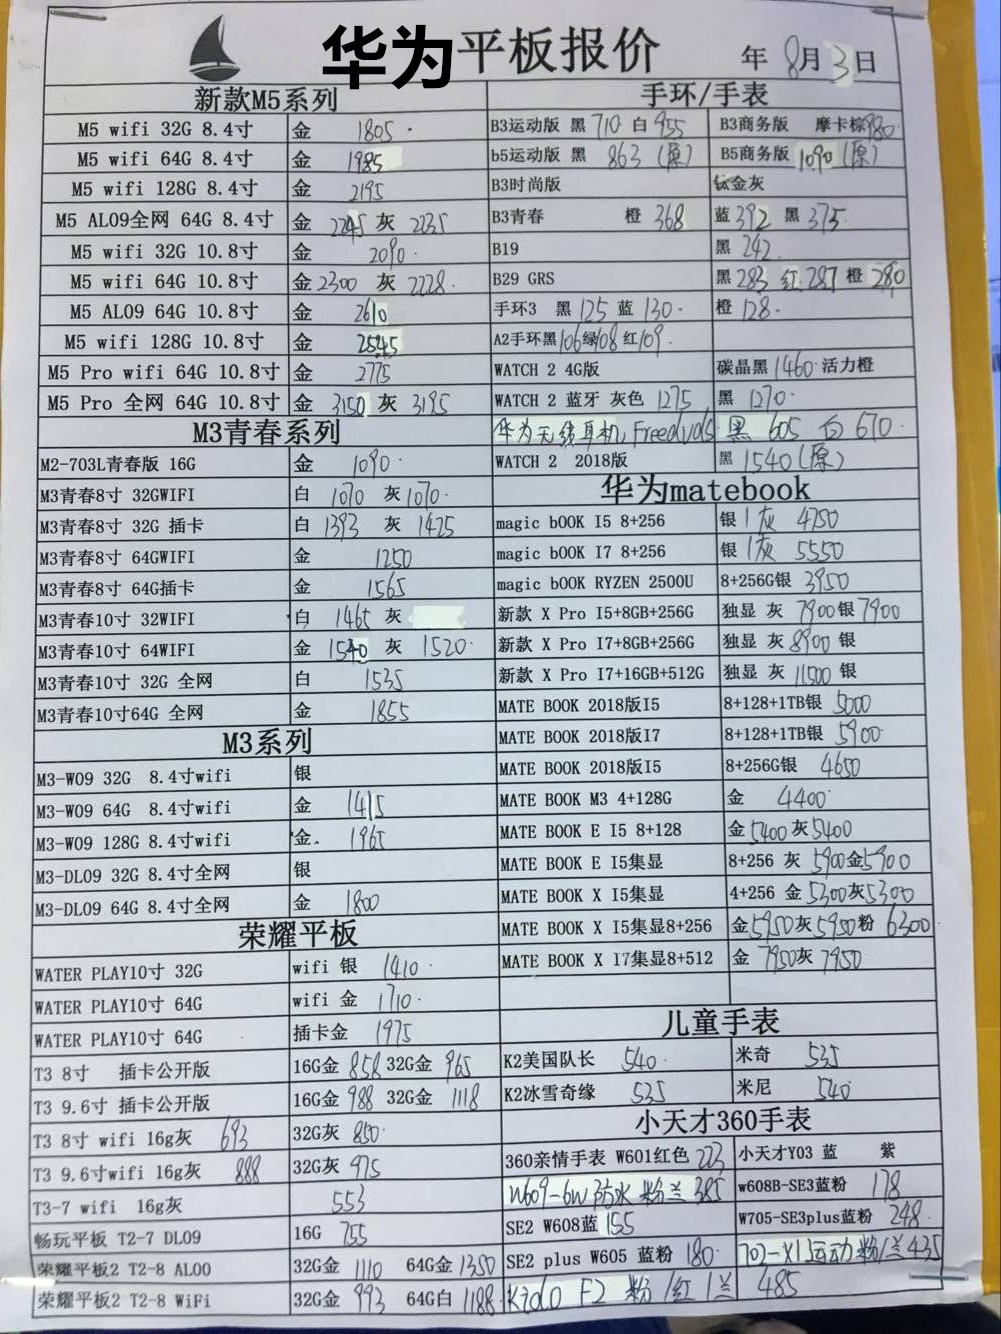 华为平板报价 年8月3日
新款M5系列
M5 wifi 32G 8.4寸 金 1805
M5 wifi 64G 8.4寸 金 1985
M5 wifi 128G 8.4寸 金 2195
M5 AL09全网 64G 8.4寸 金 2245 灰 2235
M5 wifi 32G 10.8寸 金 2090
M5 wifi 64G 10.8寸 金 2300 灰 2228
M5 AL09 64G 10.8寸 金 2610
M5 wifi 128G 10.8寸 金 2545
M5 Pro wifi 64G 10.8寸 金 2775
M5 Pro 全网 64G 10.8寸 金 3150 灰 3195
M3青春系列
M2-703L青春版 16G 金 1090
M3青春8寸 32GWIFI 白 1070 灰 1070
M3青春8寸 32G 插卡 白 1393 灰 1425
M3青春8寸 64GWIFI 金 1250
M3青春8寸 64G插卡 金 1565
M3青春10寸 32WIFI 白 1465 灰
M3青春10寸 64WIFI 金 1540 灰 1520
M3青春10寸 32G 全网 白 1535
M3青春10寸64G 全网 金 1855
M3系列
M3-W09 32G 8.4寸wifi 银
M3-W09 64G 8.4寸wifi 金 1415
M3-W09 128G 8.4寸wifi 金 1965
M3-DL09 32G 8.4寸全网 银
M3-DL09 64G 8.4寸全网 金 1800
荣耀平板
WATER PLAY10寸 32G wifi 银 1410
WATER PLAY10寸 64G wifi 金 1710
WATER PLAY10寸 64G 插卡金 1975
T3 8寸 插卡公开版 16G金 858 32G金 965
T3 9.6寸 插卡公开版 16G金 988 32G金 1118
T3 8寸 wifi 16g灰 693 32G灰 850
T3 9.6寸wifi 16g灰 888 32G灰 975
T3-7 wifi 16g灰 553
畅玩平板 T2-7 DL09 16G 755
荣耀平板2 T2-8 AL00 32G金 1110 64G金 1350
荣耀平板2 T2-8 WiFi 32G金 993 64G白 1188
手环/手表
B3运动版 黑 710 白 955 B3商务版 摩卡棕980
b5运动版 黑 863 (原) B5商务版 1090 (原)
B3时尚版 钛金灰
B3青春 橙 368 蓝 392 黑 375
B19 黑 242
B29 GRS 黑 283 红 287 橙 280
手环3 黑 125 蓝 130 橙 128
A2手环黑106绿108红109
WATCH 2 4G版 碳晶黑 1460 活力橙
WATCH 2 蓝牙 灰色 1275 黑 1270
华为无线耳机 Freeduds 黑 605 白 670
WATCH 2 2018版 黑 1540(原)
华为matebook
magic bOOK I5 8+256 银/灰 4750
magic bOOK I7 8+256 银/灰 5550
magic bOOK RYZEN 2500U 8+256G银 3950
新款 X Pro I5+8GB+256G 独显 灰 7900银7900
新款 X Pro I7+8GB+256G 独显 灰 8900 银
新款 X Pro I7+16GB+512G 独显 灰 11500 银
MATE BOOK 2018版I5 8+128+1TB银 5000
MATE BOOK 2018版I7 8+128+1TB银 5900
MATE BOOK 2018版I5 8+256G银 4650
MATE BOOK M3 4+128G 金 4400
MATE BOOK E I5 8+128 金 5400 灰5400
MATE BOOK E I5集显 8+256 灰 5900金5900
MATE BOOK X I5集显 4+256 金 5300灰5300
MATE BOOK X I5集显8+256 金5950灰5950粉 6300
MATE BOOK X 17集显8+512 金 7950灰 7950
儿童手表
K2美国队长 540 米奇 535
K2冰雪奇缘 535 米尼 540
小天才360手表
360亲情手表 W601红色 223 小天才Y03 蓝 紫
W609-6W 防水 粉兰 385 w608B-SE3蓝粉 178
SE2 W608蓝 155 W705-SE3plus蓝粉 248
SE2 plus W605 蓝粉 180 702-X1运动粉/兰435
Kido F2 粉/红/兰 485